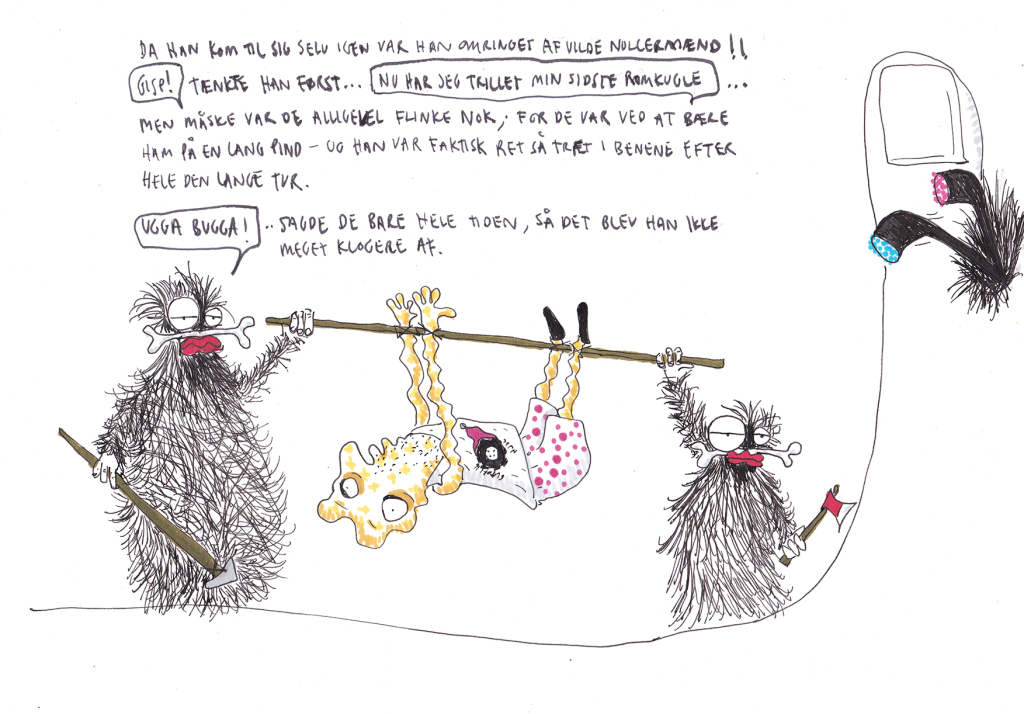 DA HAN KOM TIL SIG SELV IGEN VAR HAN OMRINGET AF VILDE NULLERMÆND!!
GISP! TÆNKTE HAN FØRST... NU HAR JEG TRILLET MIN SIDSTE ROMKUGLE ...
MEN MÅSKE VAR DE ALLIGEVEL FLINKE NOK, FOR DE VAR VED AT BÆRE
HAM PÅ EN LANG PIND - OG HAN VAR FAKTISK RET SÅ TRÆT I BENENE EFTER
HELE DEN LANGE TUR.
UGGA BUGGA! .. SAGDE DE BARE HELE TIDEN, SÅ DET BLEV HAN IKKE
MEGET KLOGERE AF.